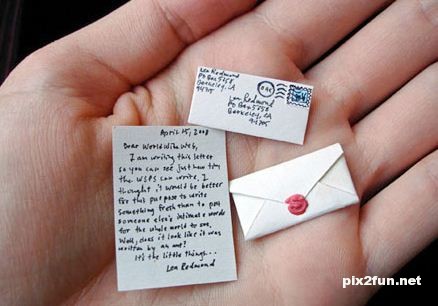 Lea Redmond
PO Box 5758
Berkeley, CA
94705
Lea Redmond
PO Box 5758
Berkeley, CA
94705
April 15, 2008
Dear World Wide Web,
I am writing this letter
so you can see just how tiny
the WSPS can write. I
thought it would be better
for this purpose to write
something fresh than to post
someone else's intimate words
for the whole world to see.
Well, does it look like it was
written by an ant?
It's the little things...
Lea Redmond
pix2fun.net